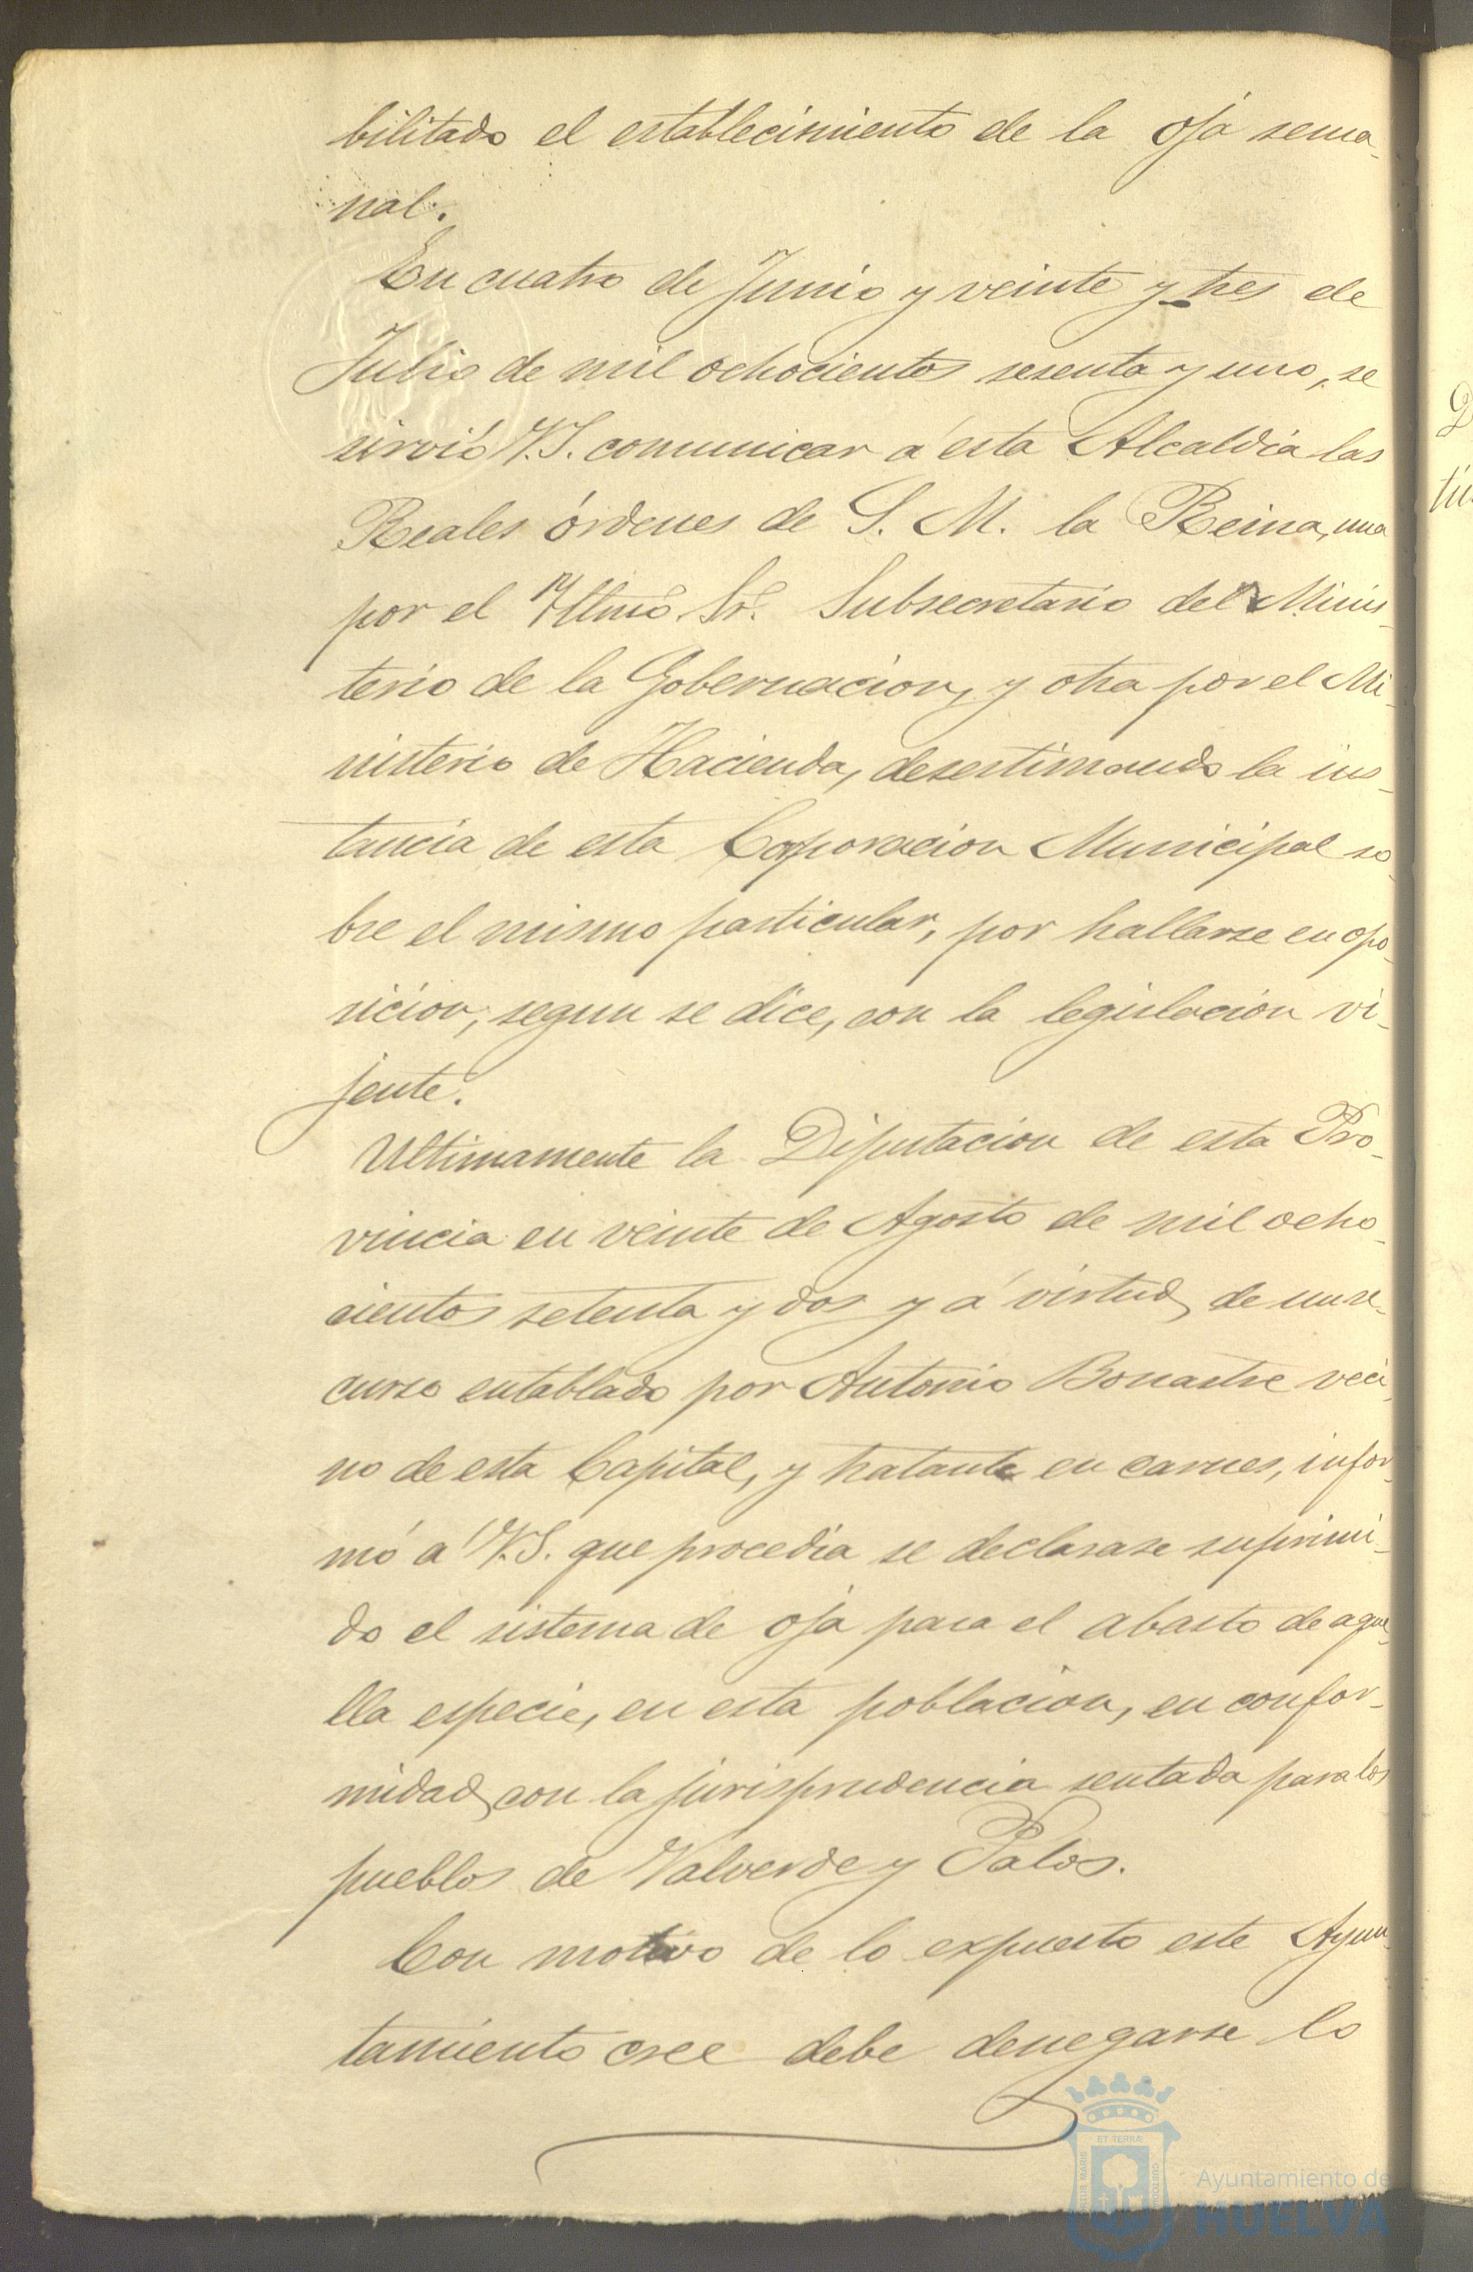 bilitado el establecimiento de la oja sema-
nal.
En cuatro de Junio y veinte y tres de
Julio de mil ochocientos sesenta y uno, se
sirvió V.S. comunicar á esta Alcaldía las
Reales órdenes de S. M. la Reina, una
por el Yltmo. Sr. Subsecretario del Minis-
terio de la Gobernacion, y otra por el Mi-
nisterio de Hacienda, desestimando la ins-
tancia de esta Corporacion Municipal so-
bre el mismo particular, por hallarse en opo-
sicion, segun se dice, con la legislacion vi-
jente.
Ultimamente la Diputacion de esta Pro-
vincia en veinte de Agosto de mil ocho-
cientos setenta y dos y á virtud de un re-
curso entablado por Antonio Bonastre veci-
no de esta Capital, y tratante en carnes, infor-
mó á V.S. que procedia se declarase suprimi-
do el sistema de oja para el abasto de aque-
lla especie, en esta poblacion, en confor-
midad con la jurisprudencia sentada para los
pueblos de Valverde y Palos.
Con motivo de lo expuesto este Ayun-
tamiento cree debe denegarse lo
ET TERRÆ
PORTUS MARIS
CUSTODIA
Ayuntamiento de
HUELVA
D